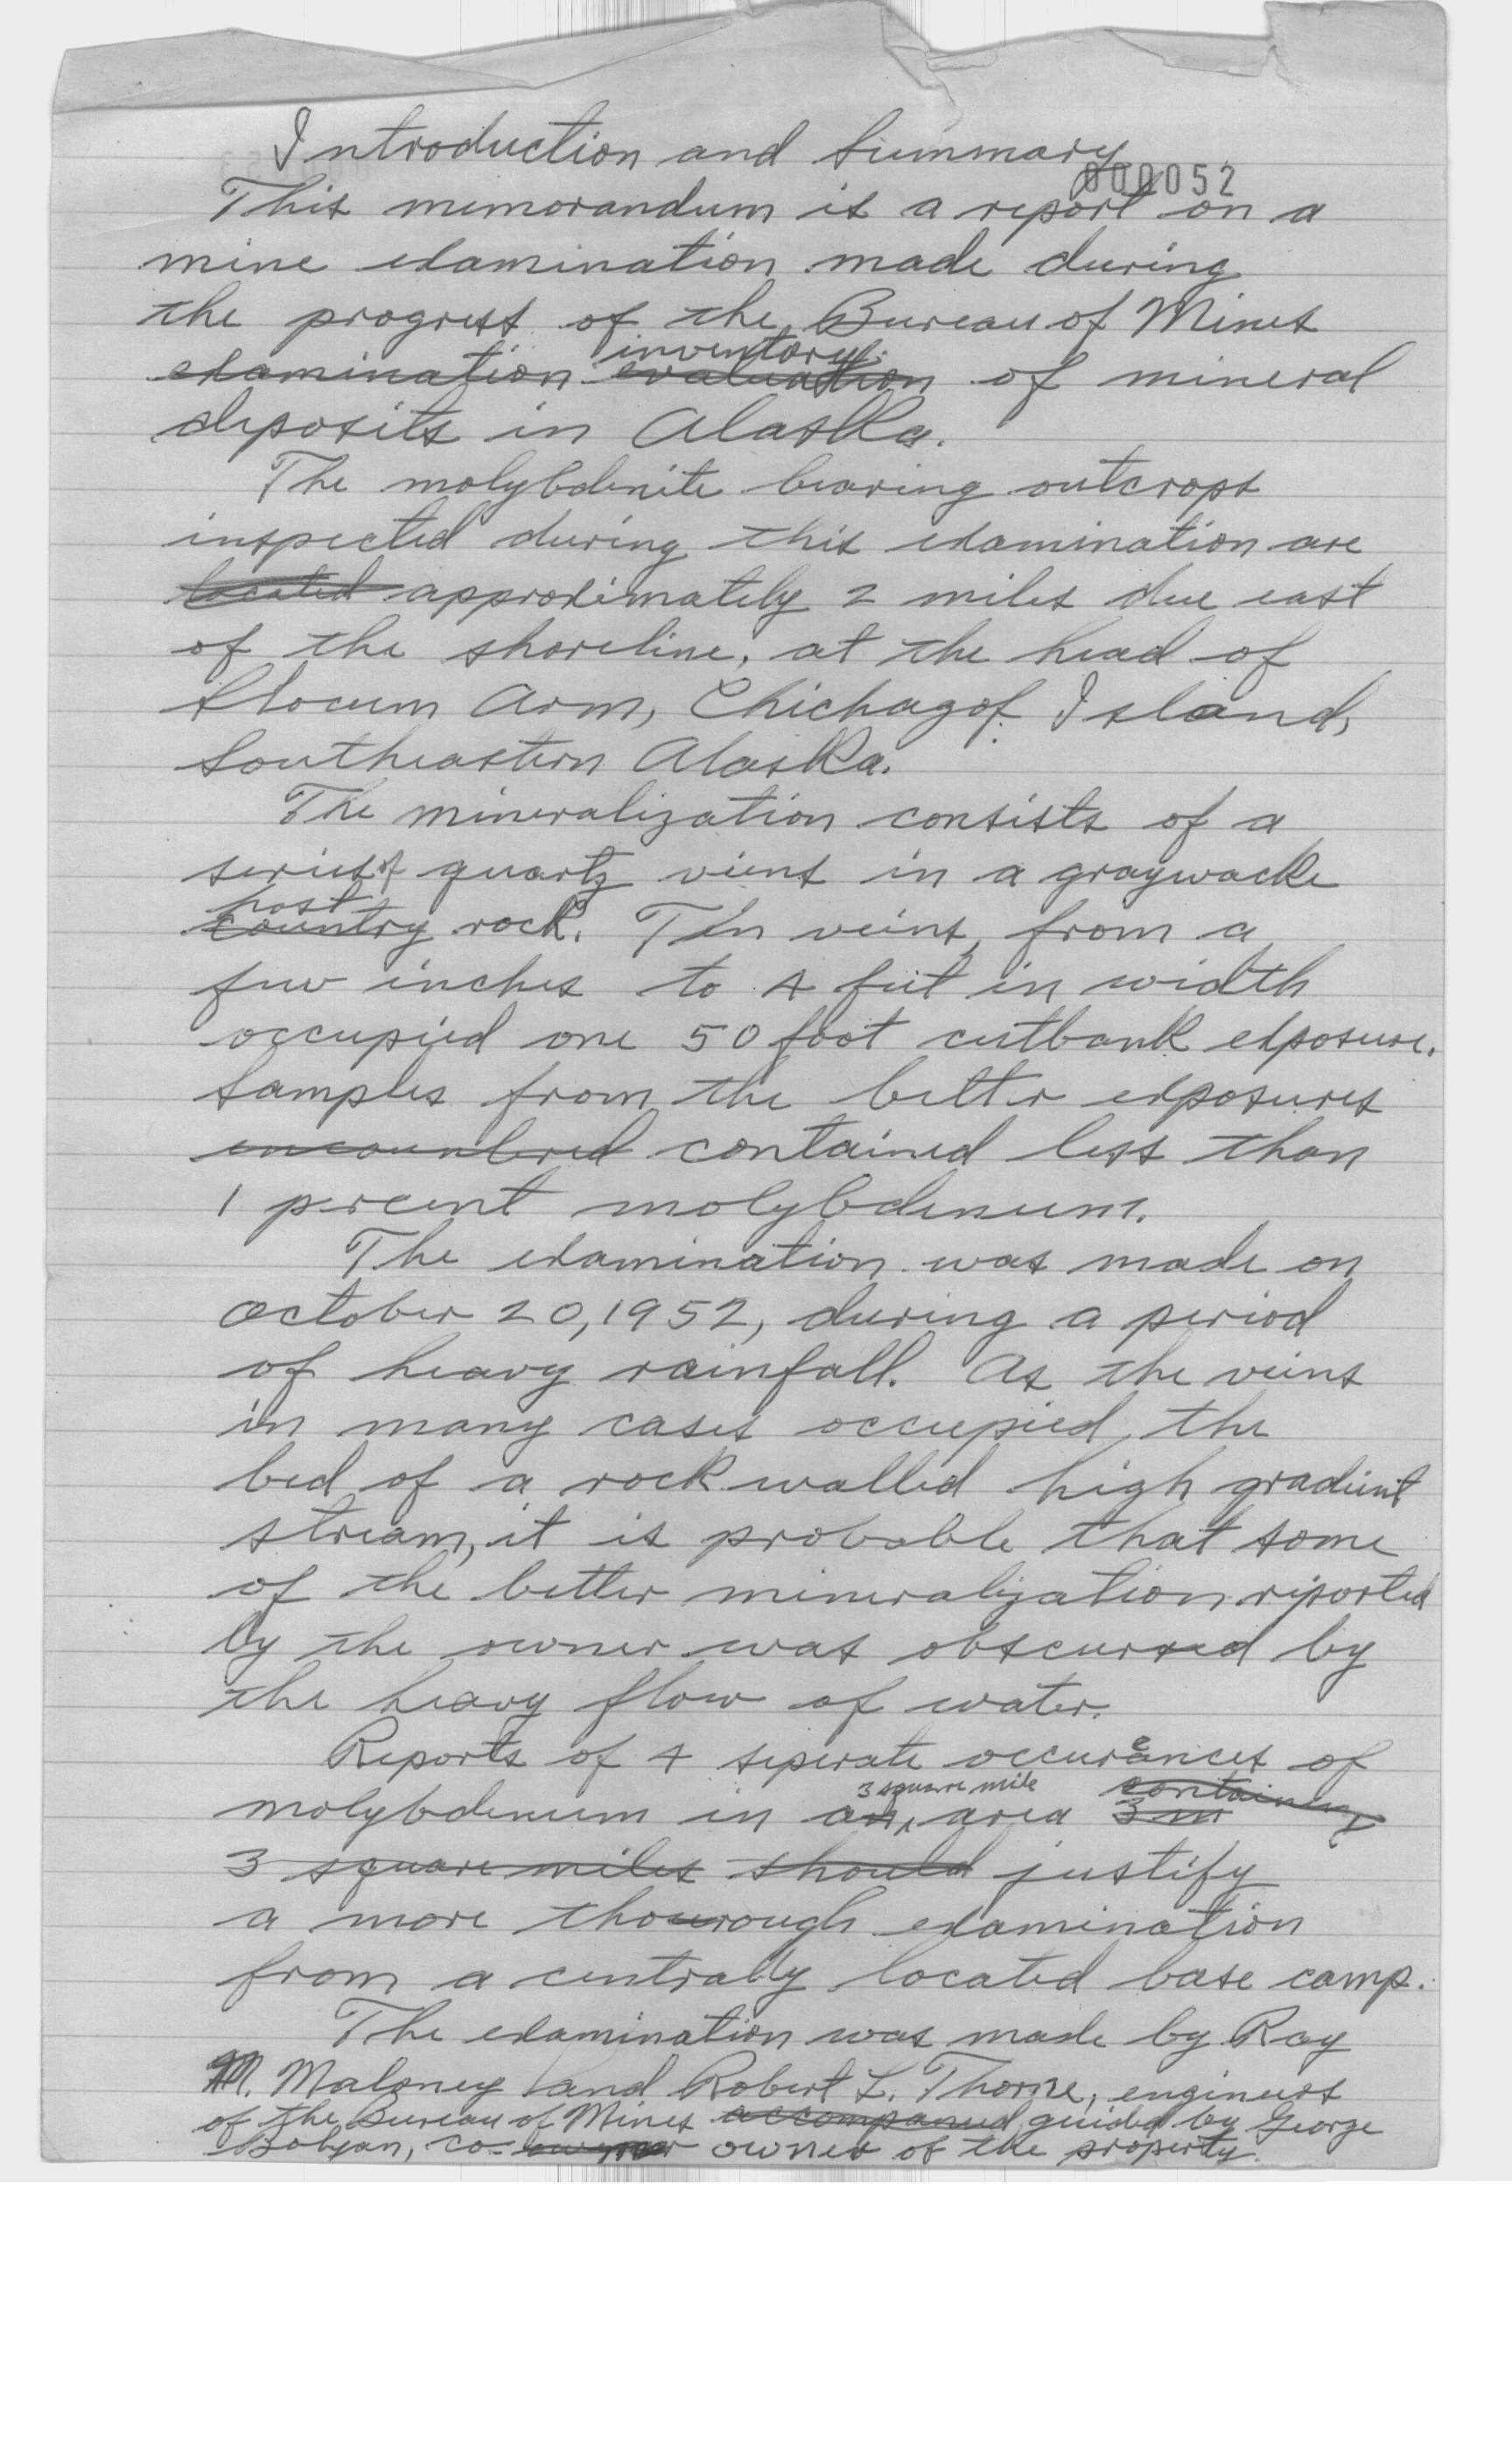 Introduction and Summary
000052
This memorandum is a report on a
mine examination made during
the progress of the Bureau of Mines
inventory
examination evaluation of mineral
deposits in Alaska.
The molybdenite bearing outcrops
inspected during this examination are
located approximately 2 miles due east
of the shoreline, at the head of
Slocum Arm, Chichagof Island,
Southeastern Alaska.
The mineralization consists of a
series of quartz viens in a graywacke
host
country rock. Ten veins, from a
few inches to 4 feet in width
occupied one 50 foot cutbank exposure.
Samples from the better exposures
encountered contained less than
1 percent molybdenum.
The examination was made on
October 20, 1952, during a period
of heavy rainfall. As the veins
in many cases occupied the
bed of a rock walled high gradient
stream, it is probable that some
of the better mineralization reported
by the owner was obscured by
the heavy flow of water.
Reports of 4 seperate occurences of
3 square mile containing
molybdenum in an area 3 m
3 square miles should justify
a more thourough examination
from a centrally located base camp.
The examination was made by Ray
M. Maloney and Robert L. Thorne, engineers
of the Bureau of Mines accompanied guided by George
Bolyan, co- owner of the property.